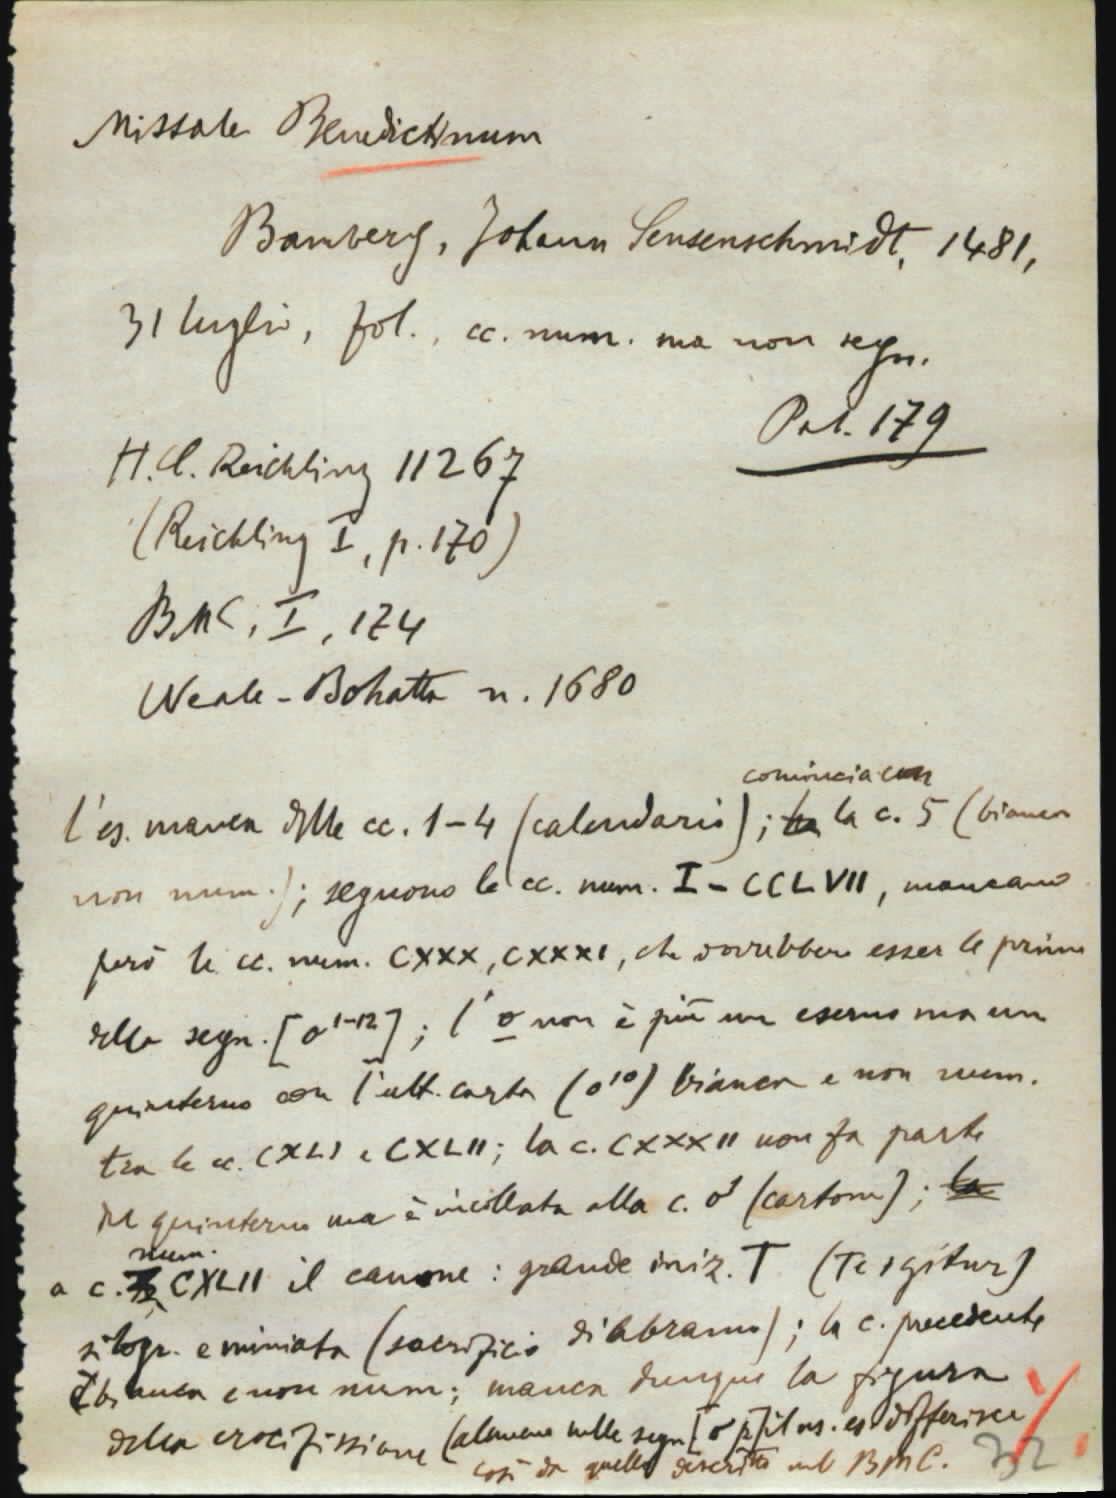 Missale Benedictinum
Bamberg, Johann Sensenschmidt, 1481,
31 luglio, fol., cc. num. ma non segn.
Pal. 179
H.C. Reichling 11267
(Reichling I, p. 170)
BMC, I, 174
Weale-Bohatta n. 1680
comincia con
l'es. manca delle cc. 1-4 (calendario); la c. 5 (bianca
non num.); seguono le cc. num. I-CCLVII, mancano
però le cc. num. CXXX, CXXXI, che dovrebbero esser le prime
della segn. [o¹⁻¹²]; l'o non è più un eserno ma un
quinterno con l'ult. carta (o¹⁰) bianca e non num.
tra le cc. CXLI e CXLII; la c. CXXXII non fa parte
del quinterno ma è incollata alla c. o¹ (cartone); la
num.
a c. CXLII il canone: grande iniz. T (Te igitur)
silogr. e miniata (sacrificio di Abramo); la c. precedente
è bianca e non num; manca dunque la figura
della crocifissione (almeno nelle segn. [o p] il ns. es. differisce
così da quello descritto nel BMC.
32